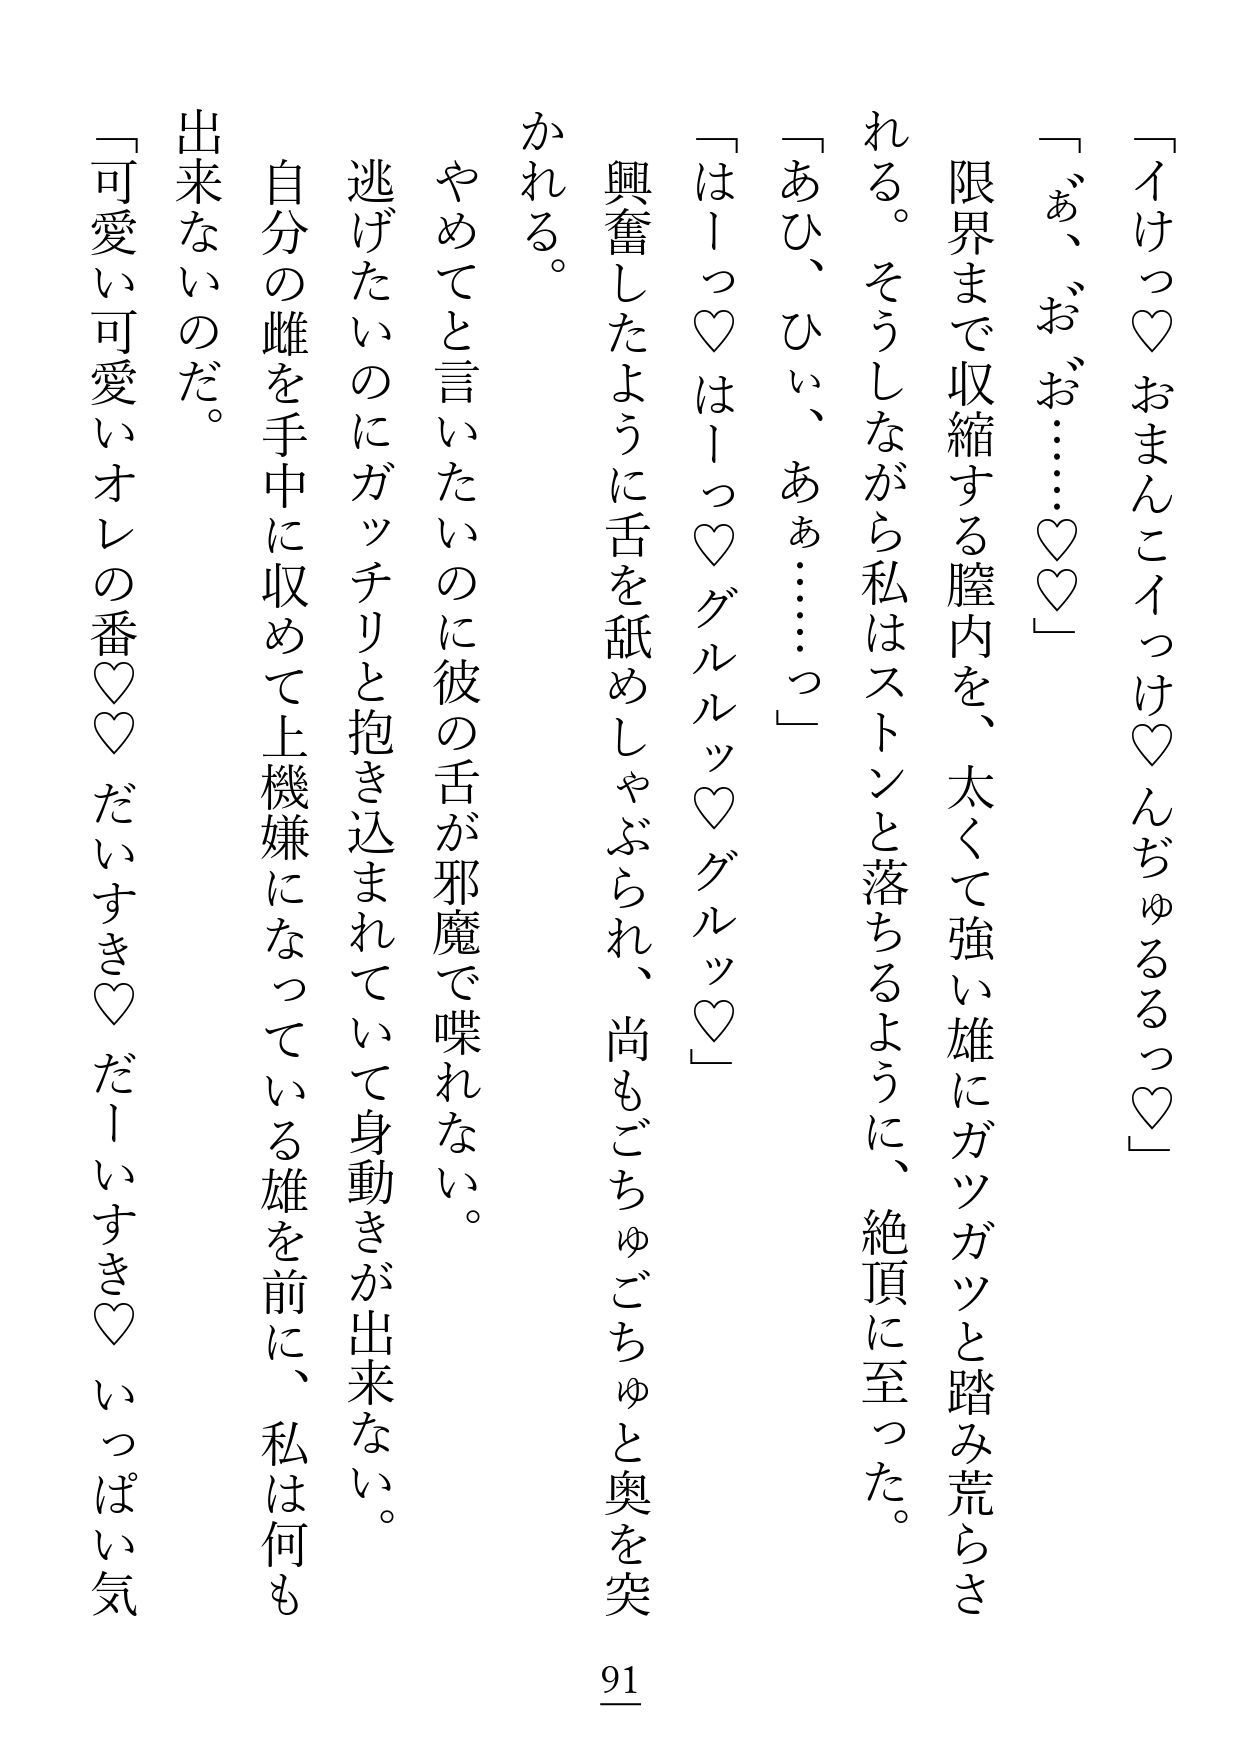 「イけっ♡ おまんこイっけ♡ んぢゅるるっ♡」
「ぁ゛、お゛お゛……♡♡」
　限界まで収縮する膣内を、太くて強い雄にガツガツと踏み荒らさ
れる。そうしながら私はストンと落ちるように、絶頂に至った。
「あひ、ひぃ、あぁ……っ」
「はーっ♡ はーっ♡ グルルッ♡ グルッ♡」
　興奮したように舌を舐めしゃぶられ、尚もごちゅごちゅと奥を突
かれる。
　やめてと言いたいのに彼の舌が邪魔で喋れない。
　逃げたいのにガッチリと抱き込まれていて身動きが出来ない。
　自分の雌を手中に収めて上機嫌になっている雄を前に、私は何も
出来ないのだ。
「可愛い可愛いオレの番♡♡ だいすき♡ だーいすき♡ いっぱい気
91